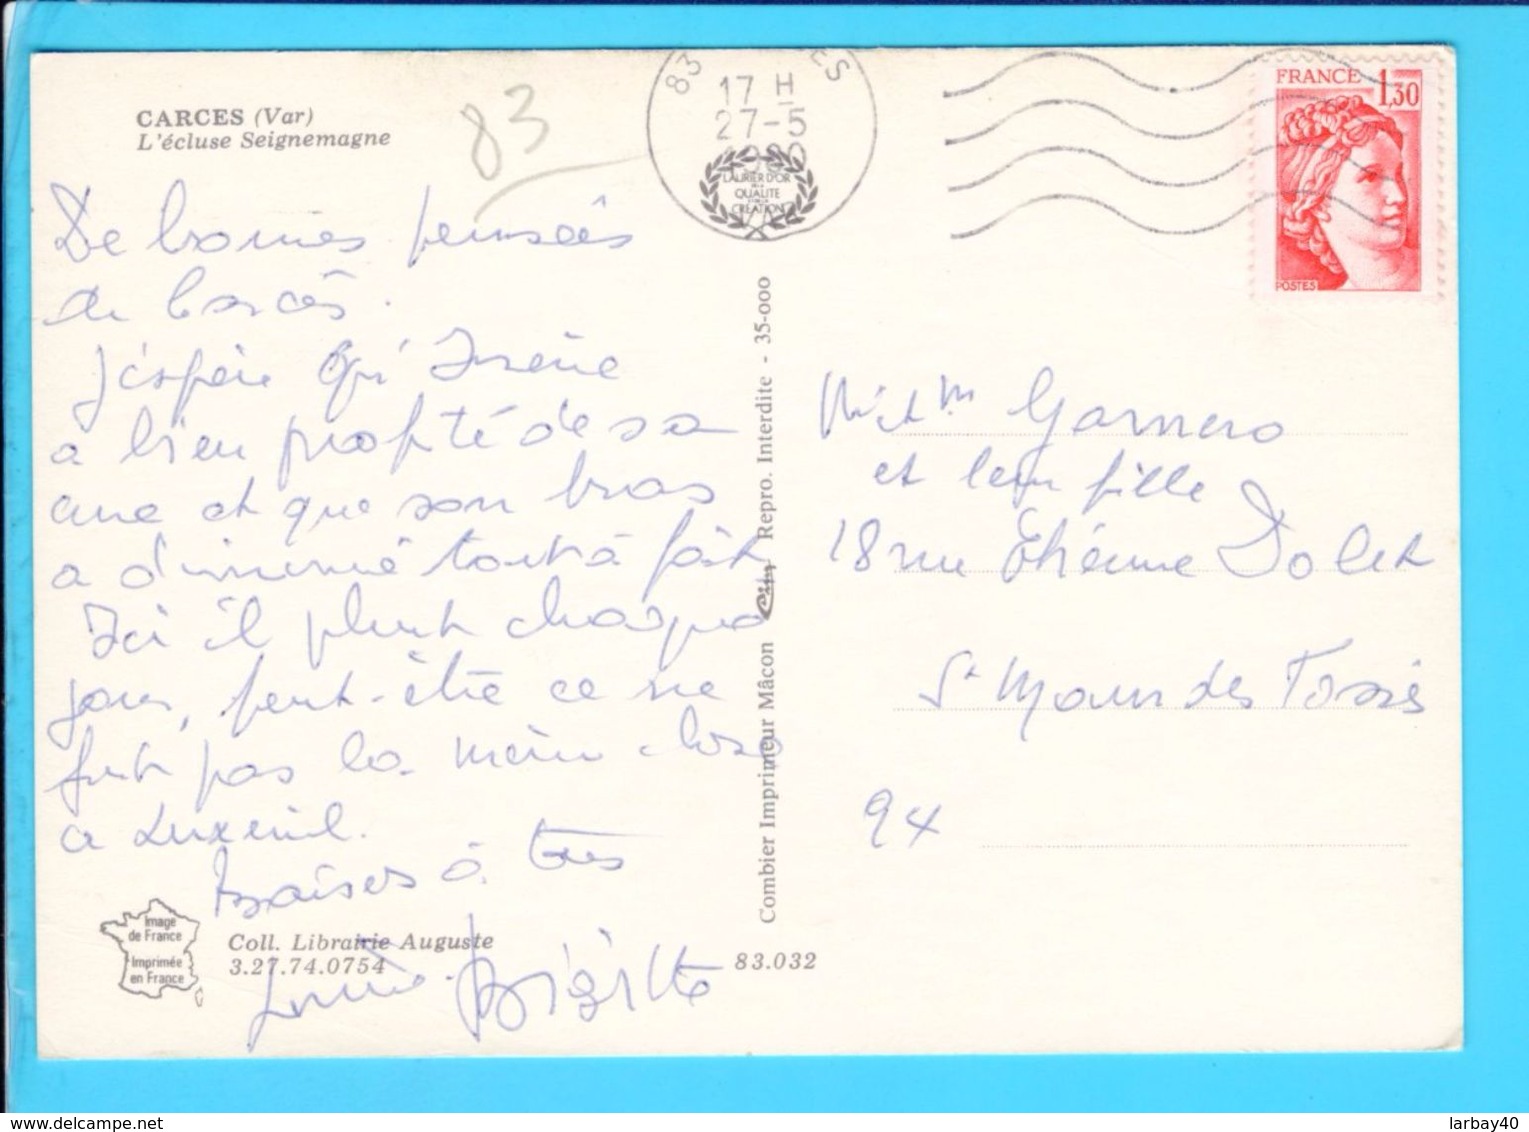 CARCES (Var)
L'écluse Seignemagne
83
83 ES
17 H
27-5
1980
LAURIER D'OR
DE LA
QUALITE
CREATION
FRANCE 1,30
POSTES
De bonnes pensées
de Carcès.
J'espère qu'Irène
a bien profité de sa
cure et que son bras
a diminué tout à fait
Ici il pleut chaque
jour, peut-être ce ne
fut pas la même chose
a Luxeuil.
baisers à tous
Brigitte
Image
de France
Imprimée
en France
Coll. Librairie Auguste
3.27.74.0754
83.032
Combier Imprimeur Mâcon Cim Repro. Interdite - 35-000
M. et Mm Garnero
et leur fille
18 rue Etienne Dolet
St Maur des Fossés
94
www.delcampe.net
larbay40